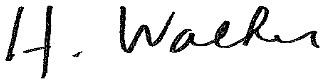 H. Walker